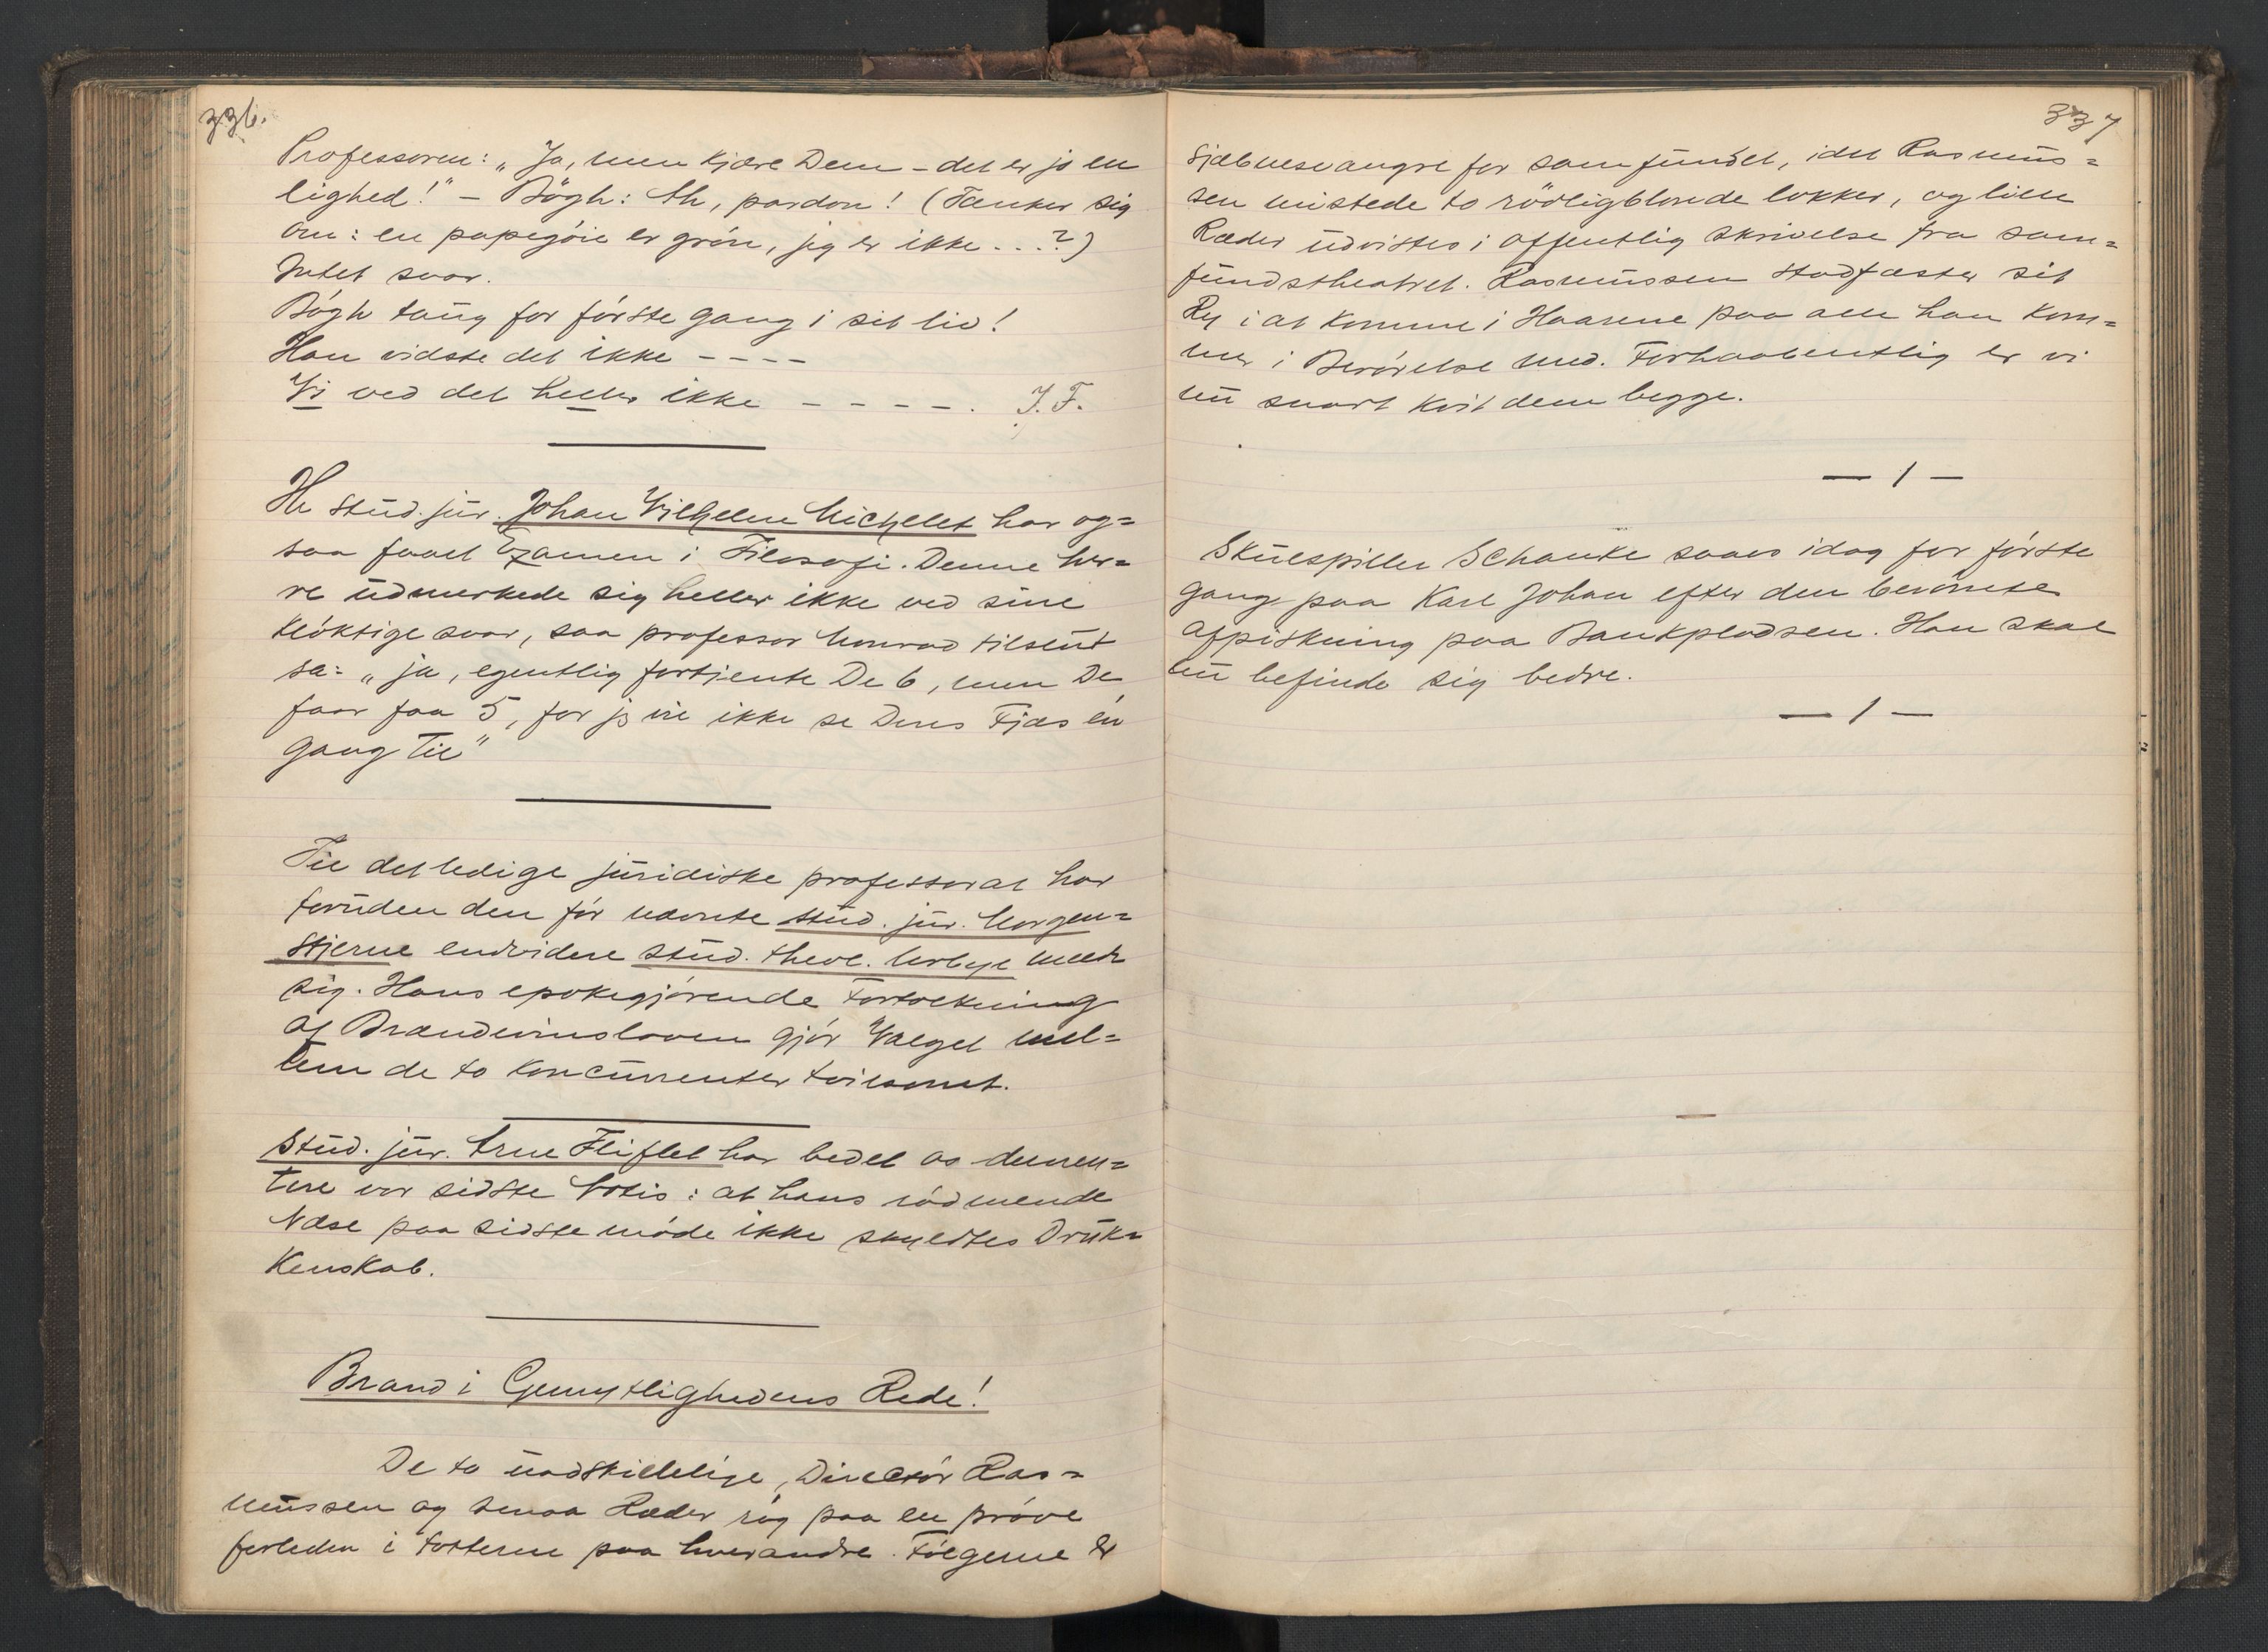 336.
Professoren: „Ja, men kjære Dem – det er jo en
lighed!" – Bögh: Ah, pardon! (Tænker sig
om: en papegöie er grön, jeg er ikke ...?)
Intet svar.
Bögh taug for förste gang i sit liv!
Han vidste det ikke – – – –
Vi ved det heller ikke – – – – . J. F.
Hr stud. jur. Johan Vilhelm Michelet har og=
saa faaet Examen i Filosofi. Denne her=
re udmerkede sig heller ikke ved sine
klöktige svar, saa professor Monrad tilslut
sa: „ja, egentlig fortjente De 6, men De
faar faa 5, for jeg vil ikke se Deres Fjæs én
gang til"
Til det ledige juridiske professorat har
foruden den för nævnte stud. jur. Morgen=
stjerne endvidere stud. theol. Urbye meldt
sig. Hans epokegjörende Fortolkning
af Brændevinsloven gjör Valget mel=
lem de to koncurrenter tvilsomt.
Stud. jur. Arne Fliflet har bedet os demen=
tere vor sidste Notis: at hans rödmende
Næse paa sidste möde ikke skyldtes Druk=
kenskab.
Brand i Gemytlighedens Rede!
De to uadskillelige, Direktör Ras=
mussen og Ræder røg paa en pröve
forleden i totterne paa hverandre. Fölgerne er
337
sjæbnesvangre for samfundet, idet Rasmus=
sen mistede to rödligblonde lokker, og lille
Ræder udvistes i offentlig skrivelse fra sam=
fundstheatret. Rasmussen stadfæster sit
Ry i at komme i Haarene paa alle han kom=
mer i Berörelse med. Forhaabentlig er vi
nu snart kvit dem begge.
— / —
Skuespiller Schanke saaes idag for förste
gang paa Karl Johan efter den berömte
afpiskning paa Bankpladsen. Han skal
nu befinde sig bedre.
— / —